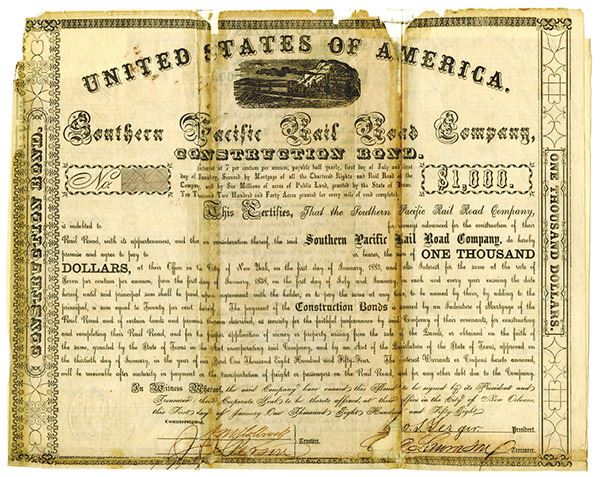 UNITED STATES OF AMERICA.
Southern Pacific Rail Road Company,
CONSTRUCTION BOND.
No.
Interest at 7 per centum per annum, payable half yearly, first day of July and first
day of January, Secured by Mortgage of all the Chartered Rights and Rail Road of the
Company, and by Six Millions of acres of Public Land, granted by the State of Texas.
Ten Thousand Two Hundred and Forty Acres granted for every mile of road completed.
$1,000.
This Certifies, That the Southern Pacific Rail Road Company,
is indebted to for moneys advanced for the construction of their
Rail Road, with its appurtenances, and that in consideration thereof, the said Southern Pacific Rail Road Company, do hereby
promise and agree to pay to or bearer, the sum of ONE THOUSAND
DOLLARS, at their Office in the City of New York, on the first day of January, 1883, and also Interest for the same at the rate of
Seven per centum per annum, from the first day of January, 1858, on the first day of July and January, in each and every year ensuing the date
hereof, until said principal sum shall be paid, upon agreement with the holder, or to pay the same at any time, to be named by them, by adding to the
principal, a sum equal to Twenty per cent. thereof. The payment of the Construction Bonds is secured by an Indenture of Mortgage of the
Rail Road and of certain lands and premises therein described, as security for the faithful performance by said Company of their covenants, for constructing
and completing their Rail Road, and for the appropriation arising from the sale of the Lands, as obtained on the faith of
the same, granted by the State of Texas in the incorporating said Company, and by an Act of the Legislature of the State of Texas, approved on
the thirtieth day of January, in the year of our Lord One Thousand Eight Hundred and Fifty-Four. The Interest Warrants or Coupons hereto annexed,
will be receivable after maturity in payment for the transportation of freight or passengers on the Rail Road, or for any other debt due to the Company.
In Witness Whereof, the said Company have caused this Bond to be signed by its President and
Treasurer, and their Corporate Seal to be thereto affixed, at their office in the City of New Orleans,
this First day of January One Thousand Eight Hundred and Fifty Eight.
Countersigned,
President.
Trustees.
Treasurer.
CONSTRUCTION BOND.
ONE THOUSAND DOLLARS.